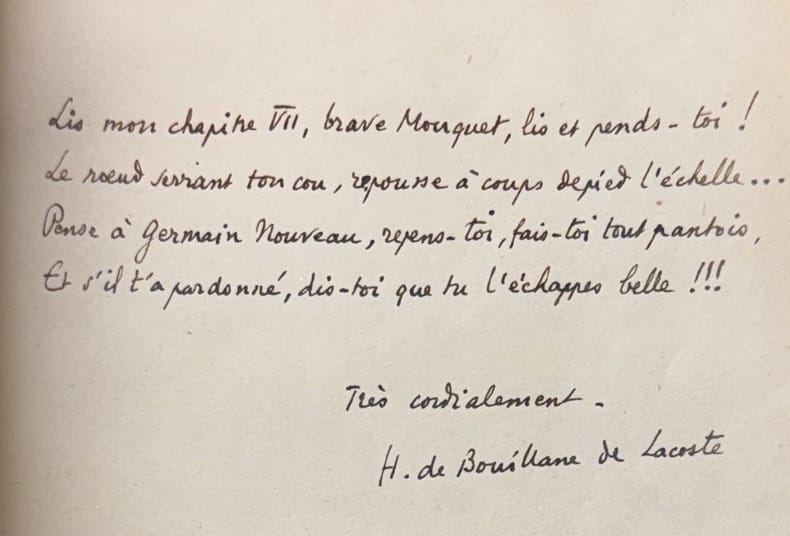 Lis mon chapitre VII, brave Mouquet, lis et pends-toi !
Le nœud serrant ton cou, repousse à coups de pied l'échelle...
Pense à Germain Nouveau, repens-toi, fais-toi tout pantois,
Et s'il t'a pardonné, dis-toi que tu l'échappes belle !!!
Très cordialement -
H. de Bouillane de Lacoste